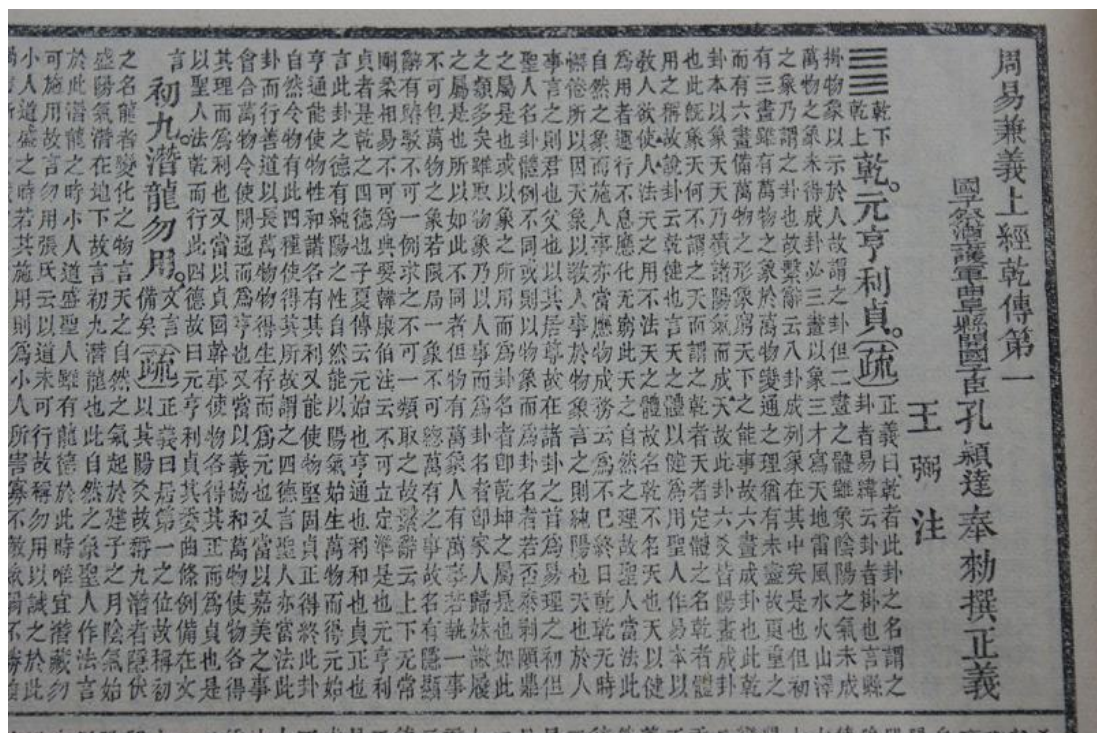 周易兼義上經乾傳第一
國子祭酒上護軍曲阜縣開國子臣孔穎達奉勅撰正義
王弼注
䷀乾下乾上乾。元亨利貞。疏正義曰乾者此卦之名謂之
卦者易緯云卦者掛也言縣
掛物象以示於人故謂之卦但二畫之體雖象陰陽之氣未成
萬物之象未得成卦必三畫以象三才寫天地雷風水火山澤
之象乃謂之卦也故繫辭云八卦成列象在其中矣是也但初
有三畫雖有萬物之象於萬物變通之理猶有未盡故更重之
而有六畫備萬物之形象窮天下之能事故六畫成卦也此乾
卦本以象天天乃積諸陽氣而成天故此卦六爻皆陽畫成卦
也此既象天何不謂之天而謂之乾者天者定體之名乾者體
用之稱故說卦云乾健也言天之體以健爲用聖人作易本以
教人欲使人法天之用不法天之體故名乾不名天也天以健
爲用者運行不息應化无窮此天之自然之理故聖人當法此
自然之象而施人事亦當應物成務云爲不已終日乾乾无時
懈倦所以因天象以教人事於物象言之則純陽也天也於人
事言之則君也父也以其居尊故在諸卦之首爲易理之初但
聖人名卦體例不同或則以物象而爲卦名者若否泰剝頤鼎
之屬是也或以象之所用而爲卦名者即乾坤之屬是也如此
之類多矣雖取物象乃以人事而爲卦名者即家人歸妹謙履
之屬是也所以如此不同者但物有萬象人有萬事若執一事
不可包萬物之象若限局一象不可總萬有之事故名有隱顯
辭有踳駁不可一例求之不可一類取之故繫辭云上下无常
剛柔相易不可爲典要韓康伯注云不可立定準是也元亨利
貞者是乾之四德也子夏傳云元始也亨通也利和也貞正也
言此卦之德有純陽之性自然能以陽氣始生萬物而得元始
亨通能使物性和諧各有其利又能使物堅固貞正得終此卦
自然令物有此四種使得其所故謂之四德言聖人亦當法此
卦而行善道以長萬物物得生存而爲元也又當以嘉美之事
會合萬物令使開通而爲亨也又當以義協和萬物使物各得
其理而爲利也又當以貞固幹事使物各得其正而爲貞也是
以聖人法乾而行此四德故曰元亨利貞其委曲條例備在文
言
初九。潛龍勿用。文言備矣疏正義曰居第一之位故稱初
以其陽爻故稱九潛者隱伏
之名龍者變化之物言天之自然之氣起於建子之月陰氣始
盛陽氣潛在地下故言初九潛龍也此自然之象聖人作法言
於此潛龍之時小人道盛聖人雖有龍德於此時唯宜潛藏勿
可施用故言勿用張氏云以道未可行故稱勿用以誡之於此
小人道盛之時若其施用則爲小人所害寡不敵